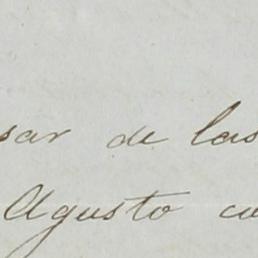 sar de las
Agusto cu